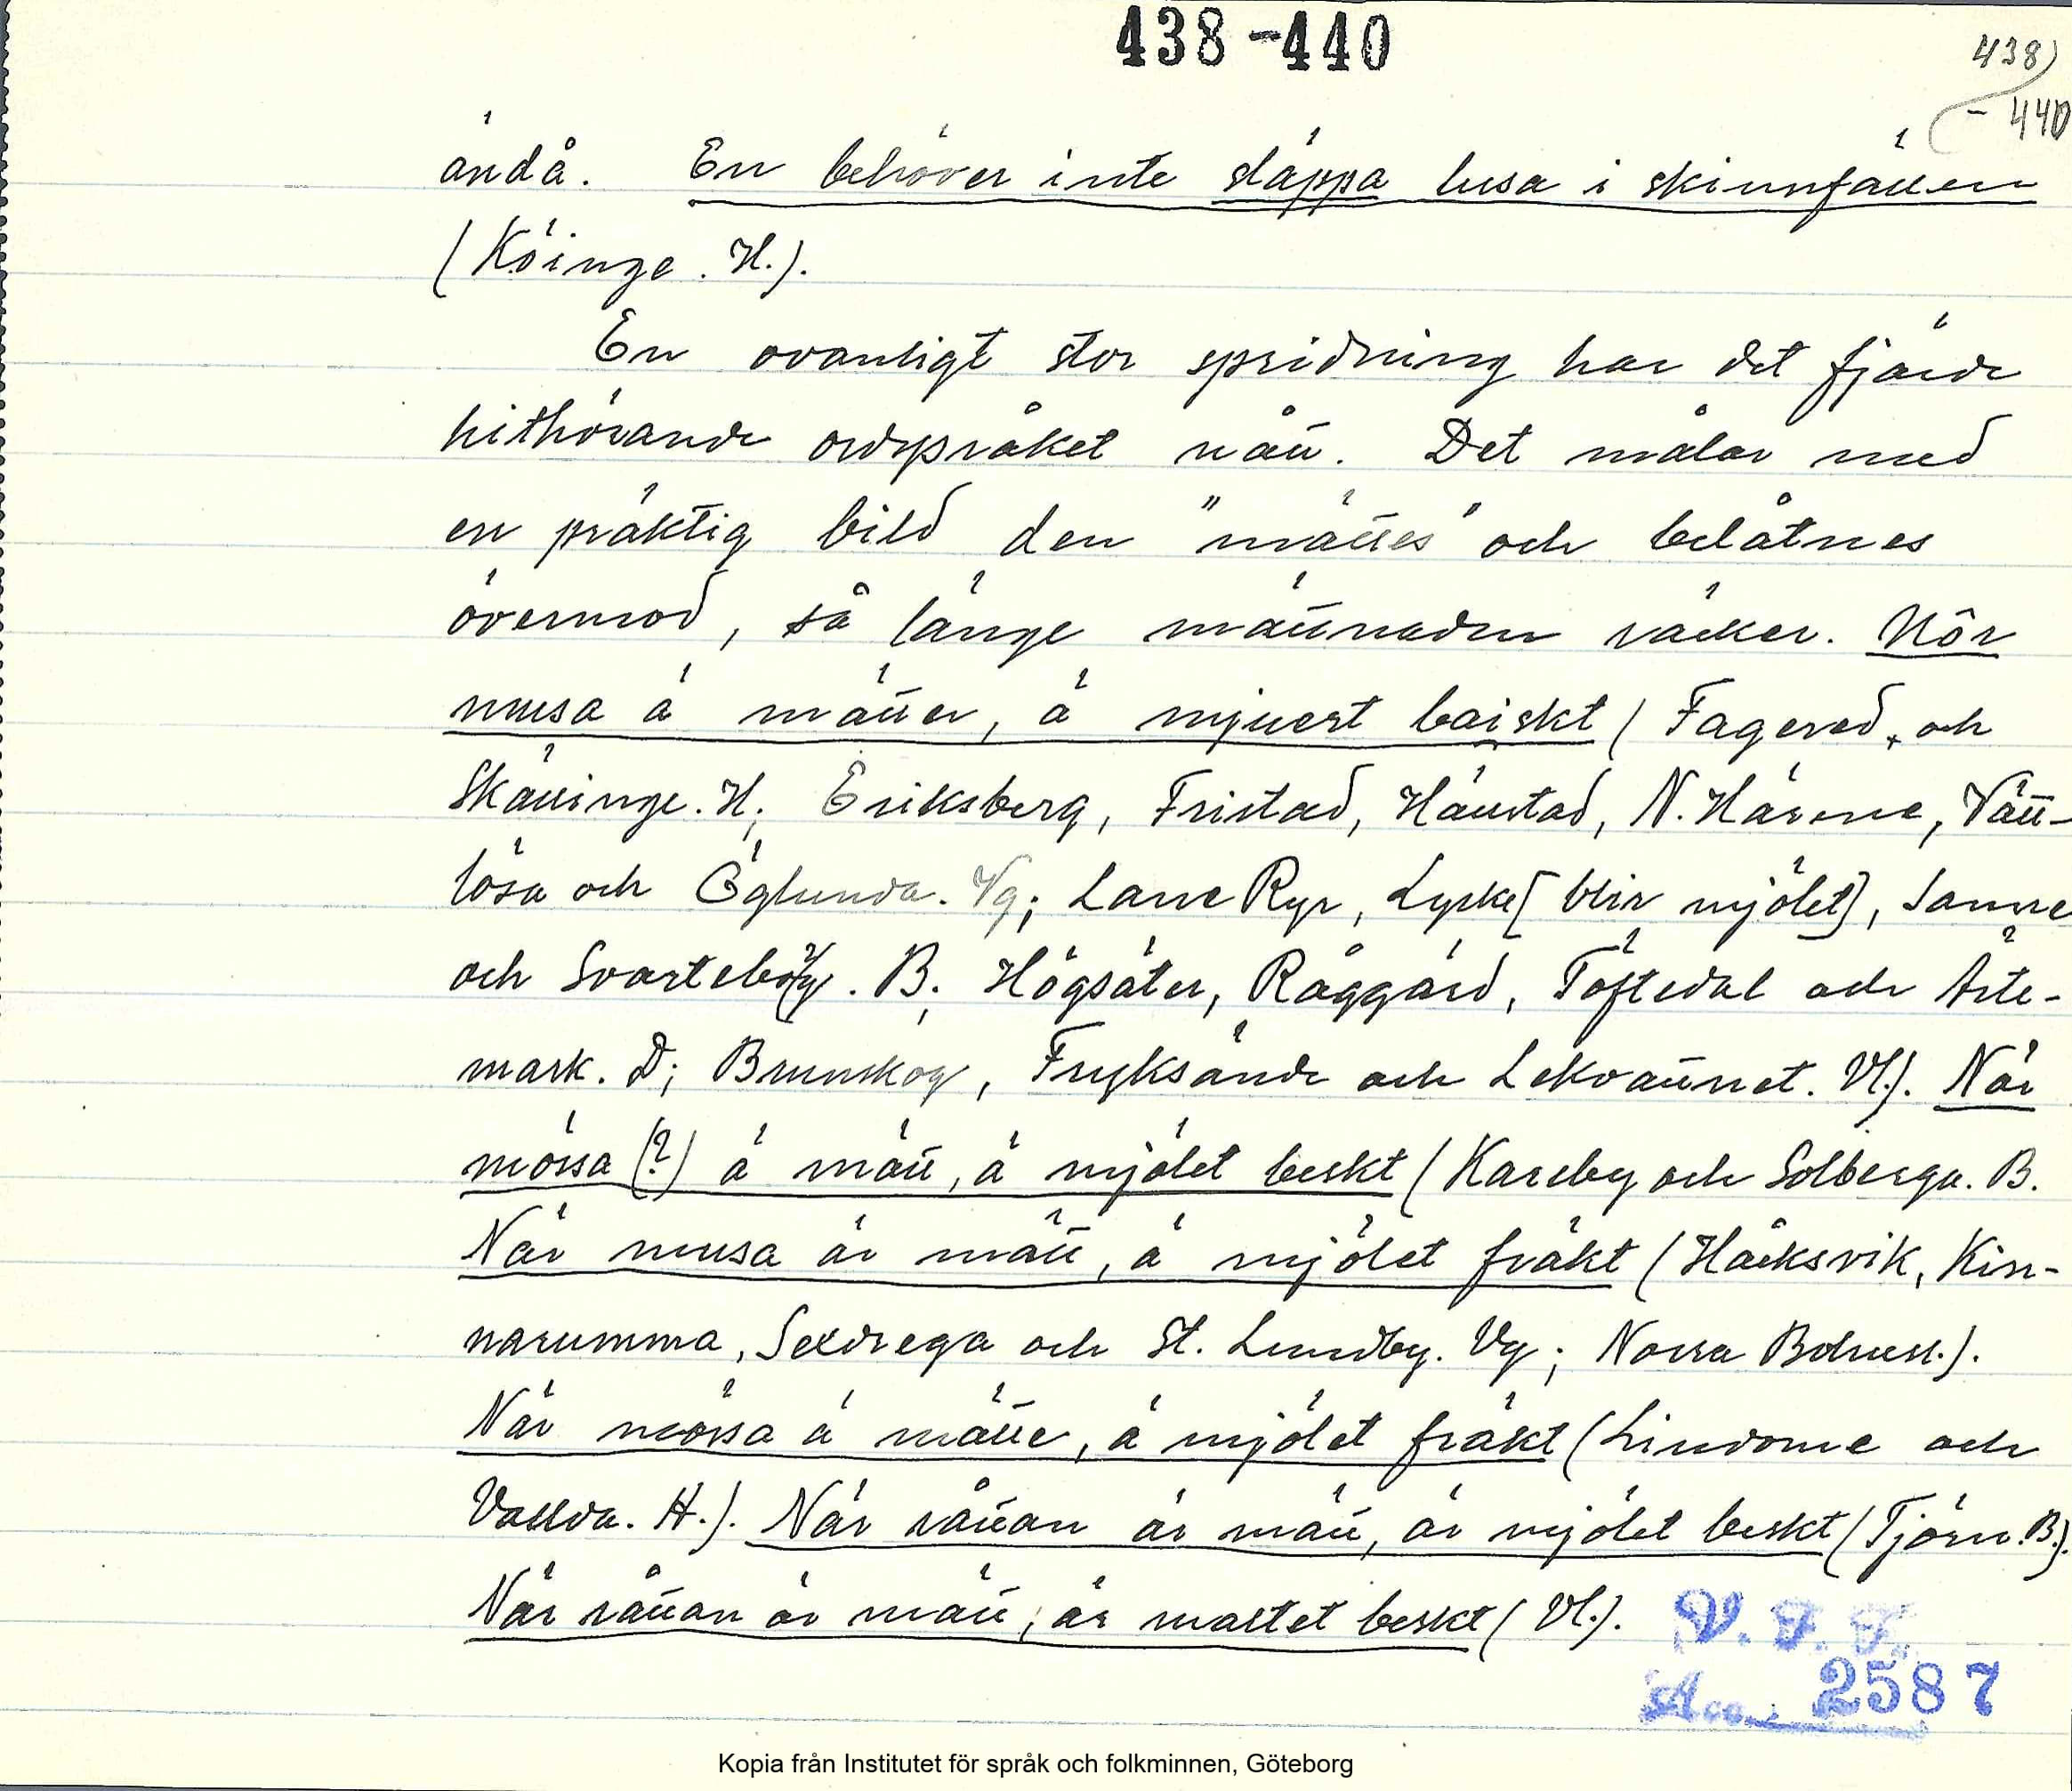 438-440
438)
- 440
ändå. En behöver inte släppa lusa i skinnfällen
(Köinge. H.).
En ovanligt stor spridning har det fjärde
hithörande ordspråket nått. Det målar med
en präktig bild den "mättes" och belåtnes
övermod, så länge mättnaden räcker. Nôr
musa ä mätter, ä mjuert baiskt (Fagered och
Skällinge. H; Eriksberg, Fristad, Hällstad, N. Härene, Vätt-
lösa och Öglunda. Vg; Lane Ryr, Lyske [blir mjölet], Sanne
och Svarteborg. B; Högsäter, Råggärd, Töftedal och Ärte-
mark. D; Brunskog, Fryksände och Lekvattnet. Vl.). När
mössa (?) ä mätt, ä mjölet beskt (Kareby och Solberga. B.
När musa är mätt, ä mjölet fräkt (Håcksvik, Kin-
narumma, Sexdrega och St. Lundby. Vg; Norra Bohusl.).
När mössa ä mätte, ä mjölet fräkt (Lindome och
Vallda. H.). När råttan är mätt, är mjölet beskt (Tjörn. B.).
När råttan är mätt, är maltet beskt (Vl.).
V. F. F.
Acc. 2587
Kopia från Institutet för språk och folkminnen, Göteborg